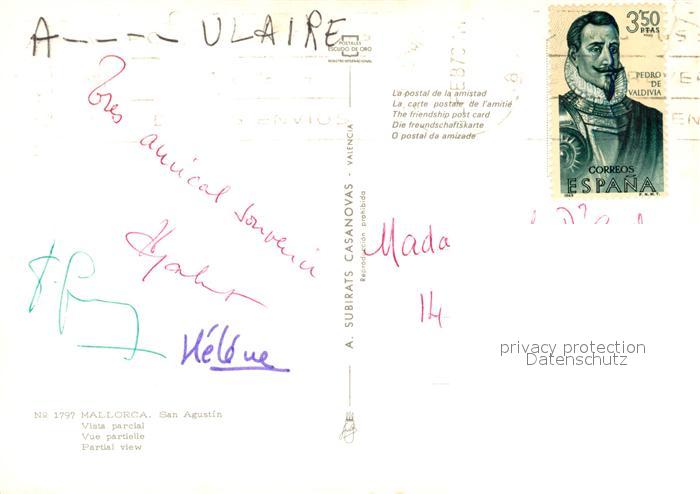 A----- ULAIRE
POSTALES
ESCUDO DE ORO
3'50
PTAS
PEDRO
DE
VALDIVIA
CORREOS
ESPAÑA
La postal de la amistad
La carte postale de l'amitié
The friendship post card
Die freundschaftskarte
O postal da amizade
ENVIOS
Très amical souvenir
Hélène
A. SUBIRATS CASANOVAS - VALENCIA
Reproducción prohibida
Mada
14
privacy protection
Datenschutz
Nº 1797 MALLORCA. San Agustín
Vista parcial
Vue partielle
Partial view